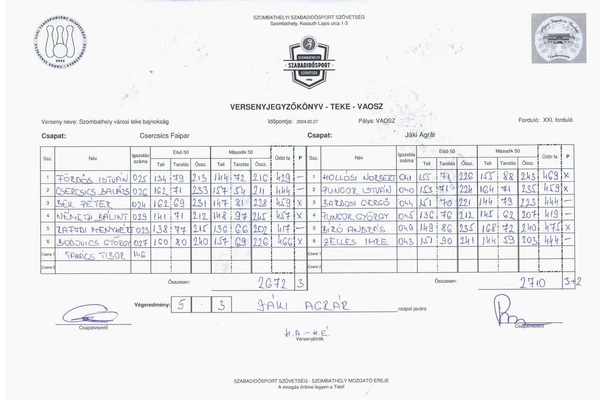 SZOMBATHELYI SZABADIDŐSPORT SZÖVETSÉG
Szombathely, Kossuth Lajos utca 1-3
SZOMBATHELYI
SZABADIDŐSPORT
SZÖVETSÉG
VERSENYJEGYZŐKÖNYV - TEKE - VAOSZ
Verseny neve: Szombathely városi teke bajnokság Időpontja: 2024.02.27 Pálya: VAOSZ Forduló: XXI. forduló
Csapat: Csercsics Faipar Csapat: Jáki Agrár
Ssz. Név Igazolás száma Első 50 Második 50 Ütött fa P Ssz. Név Igazolás száma Első 50 Második 50 Ütött fa P
Teli Tarolás Össz. Teli Tarolás Össz. Teli Tarolás Össz. Teli Tarolás Össz.
1 ISTVÁN 025 134 79 213 144 72 216 429 – 1 HOLLÓSI NORBERT 041 155 71 226 155 88 243 469 X
2 CSERCSICS BALÁZS 026 162 71 233 157 54 211 444 – 2 PUNGOR ISTVÁN 040 153 71 224 164 71 235 459 X
3 BÉK PÉTER 024 162 69 231 147 81 228 459 X 3 BARDOSI GERGŐ 044 151 70 221 144 79 223 444 –
4 NÉMETH BÁLINT 029 141 71 212 148 97 245 457 X 4 PUNGOR GYÖRGY 045 136 76 212 145 62 207 419 –
5 MENYHÉRT 023 138 77 215 136 66 202 417 – 5 BIRÓ ANDRÁS 049 149 86 235 168 72 240 475 X
6 BODUJICS GYÖRGY 027 160 80 240 157 69 226 466 X 6 ZELLES IMRE 043 151 90 241 144 59 203 444 –
Csere 1 TAKÁCS TIBOR 146 Csere 1
Csere 2 Csere 2
Összesen: 2672 3 Összesen: 2710 3+2
Végeredmény: 5 . 3 JÁKI AGRÁR csapat javára
Csapatvezető Csapatvezető
Versenybírók
SZABADIDŐSPORT SZÖVETSÉG - SZOMBATHELY MOZGATÓ EREJE
A mozgás öröme legyen a Tiéd!